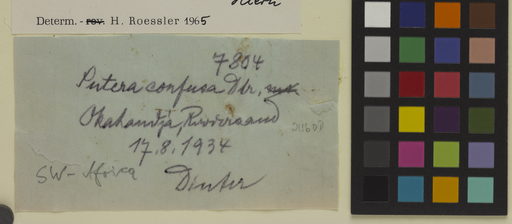 Determ. - rev. H. Roessler 1965
7804
Putera confusa Dtr.
Okahandja, Riviersand
17.8.1934
SW-Afrika
Dinter